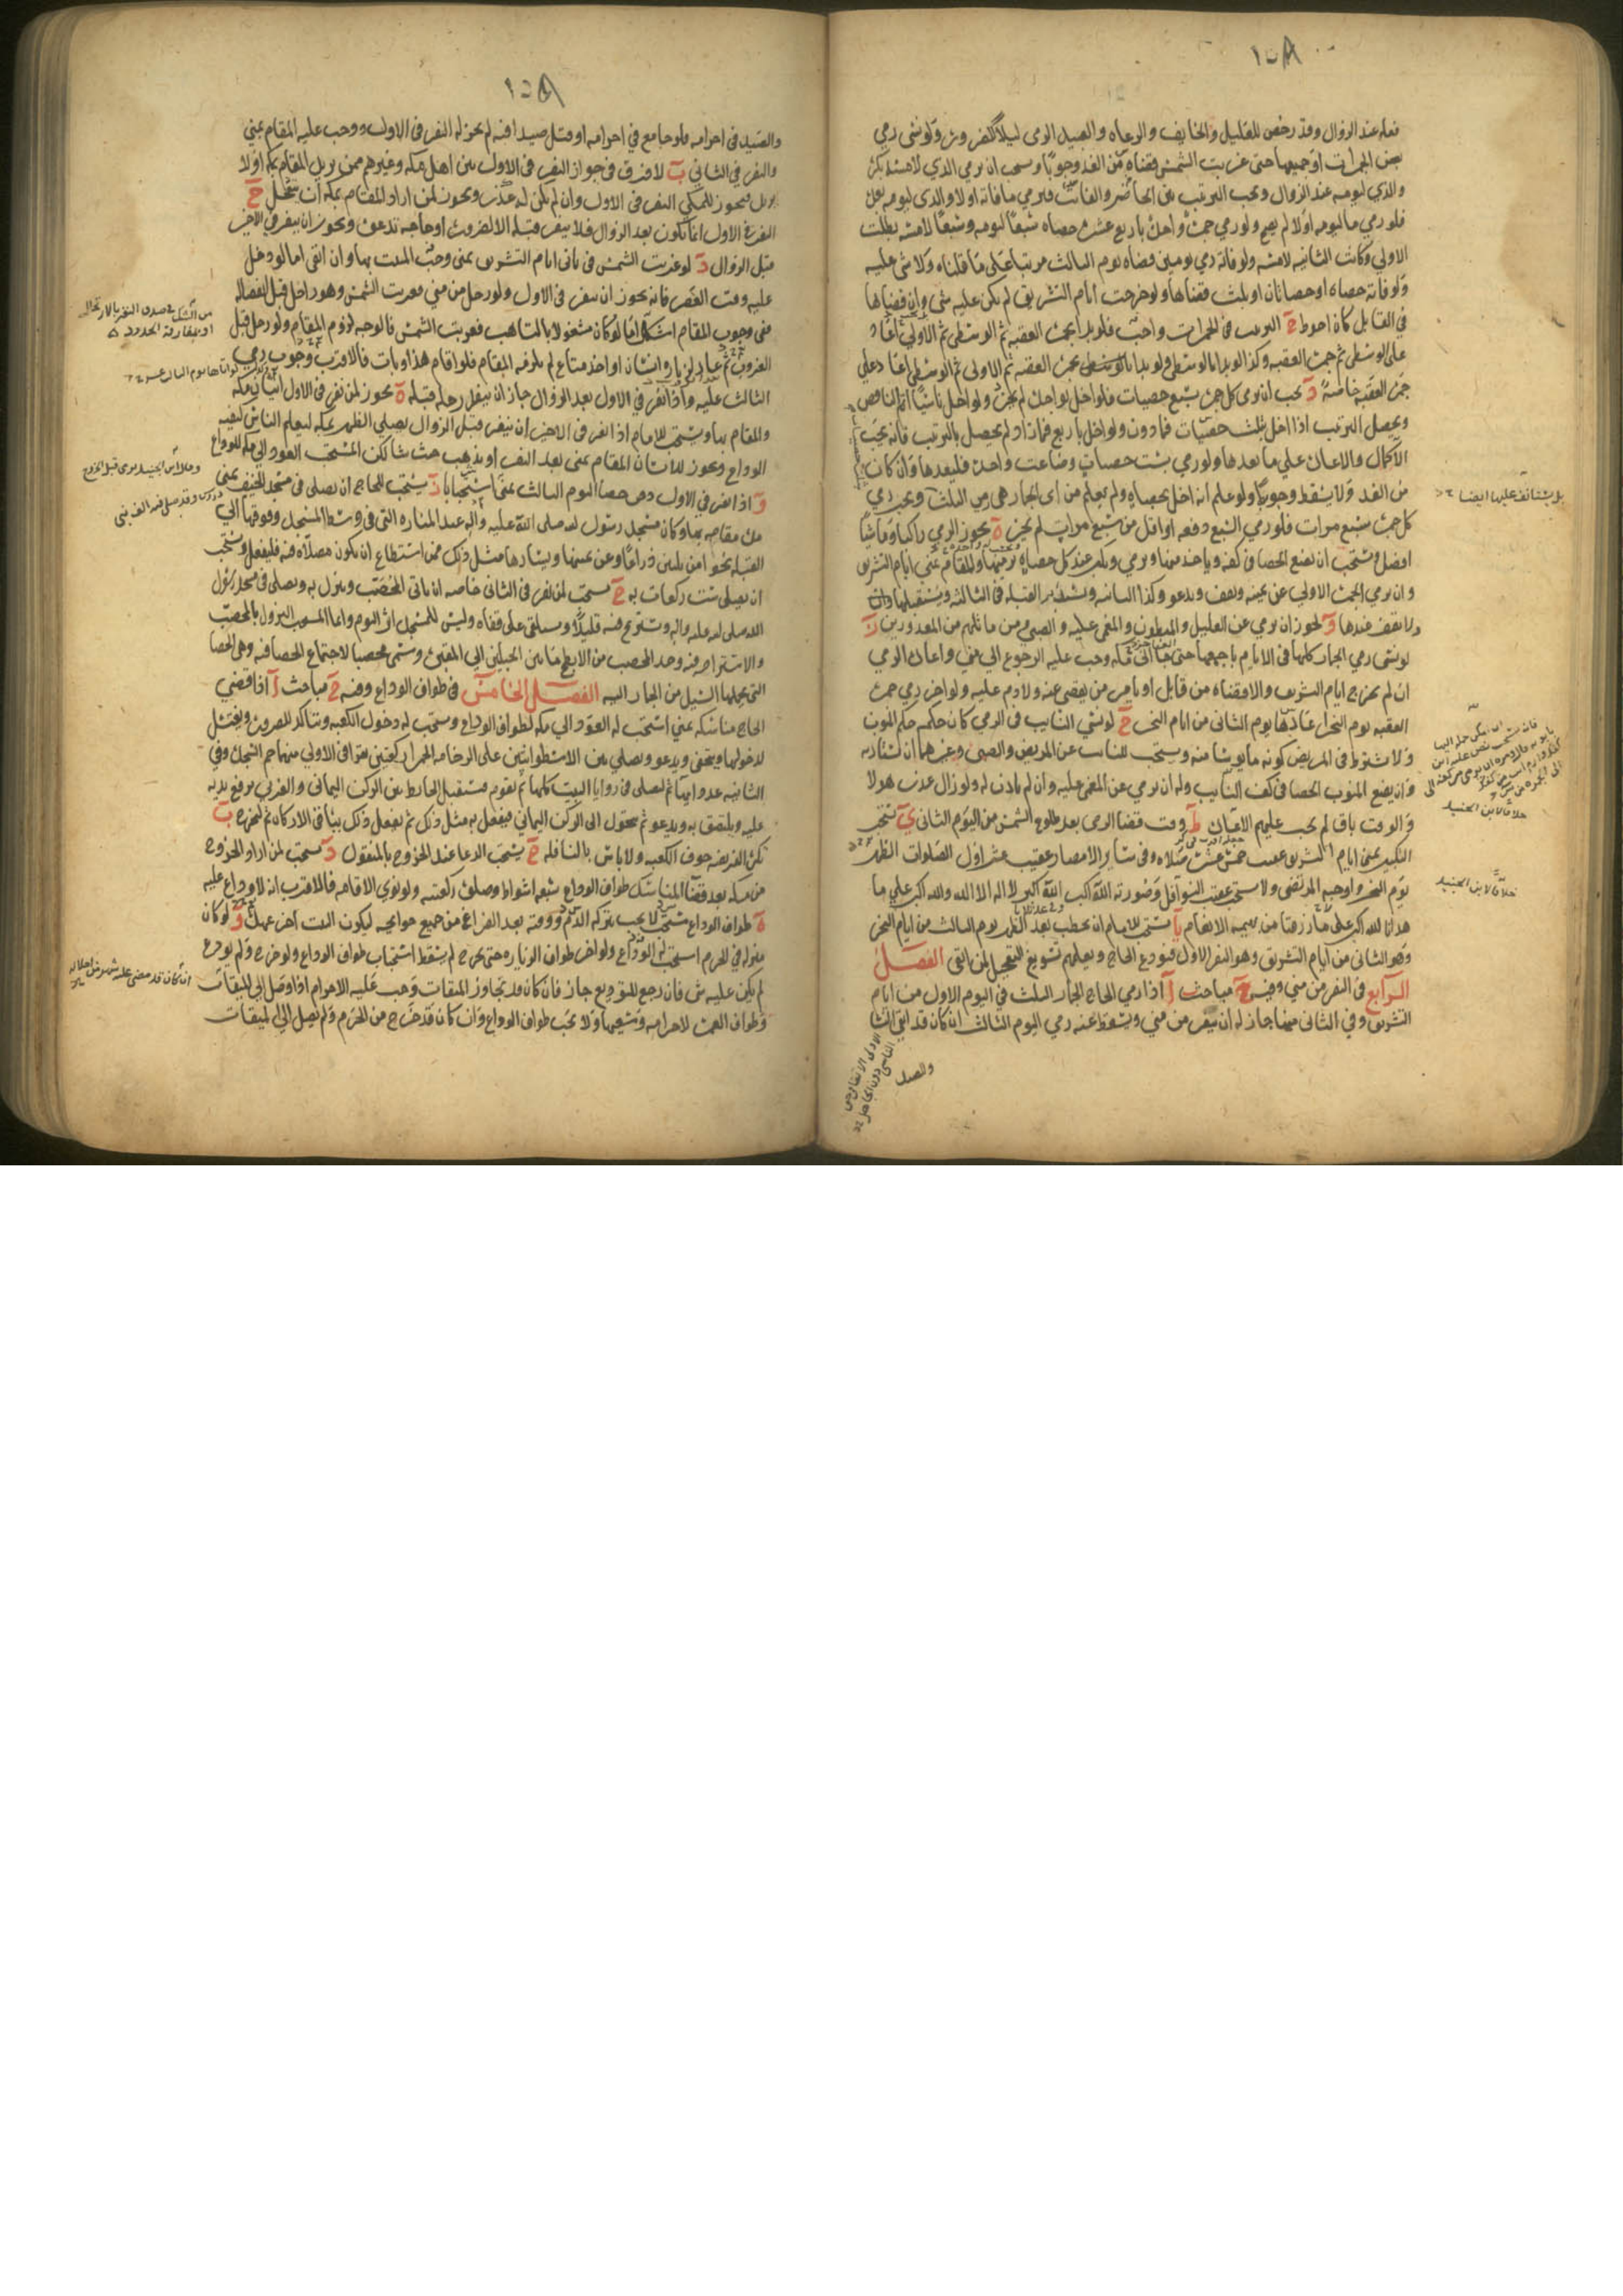 ١٥٨
فعله عند الزوال وقد رخص للعليل والخايف والرعاه والعبيد الرمى ليلا ولو نسى رمي
بعض الجمرات او جميعها حتى غربت الشمس قضاه من الغد وجوبا ويستحب ان يرمي الذي لامسه بكرة
والذي ليومه عند الزوال ويجب الترتيب بين الحاضر والفائت فيرمي ما فاته اولا والذى ليومه بعده
فلو رمي ما ليومه اولا لم يصح ولو رمي جمرة واحدة باربع عشرة حصاه سبعا ليومه وسبعا لامسه بطلت
الاولي وكانت الثانيه لامسه ولو فاته رمي يومين قضاه يوم الثالث مرتبا على ما قلناه ولا شى عليه
ولو فاته حصاه او حصاتان او ثلث قضاها ولو خرجت ايام التشريق لم يكن عليه شى وان قضاها
في القابل كان احوط ج الترتيب في الجمرات واجب فلو بدا بجمرة العقبه ثم الوسطى ثم الاولى اعاد
على الوسطى ثم جمرة العقبه وكذا لو بدا بالوسطى ولو بدا بجمرة العقبه ثم الاولى ثم الوسطى اعاد على
جمرة العقبه خاصة د يجب ان يرمى كل جمرة بسبع حصيات فلو اخل بواحدة لم يجز ولو اخل ناسيا اتم الناقص
ويحصل الترتيب اذا اخل بثلث حصيات فما دون ولو اخل باربع فما زاد لم يحصل بالترتيب فانه يجب
الاكمال والاعادة على ما بعدها ولو رمي بست حصيات وضاعت واحدة فليعدها وان كان
من الغد ولا يسقط وجوبها ولو علم انه اخل بحصاه ولم يعلم من اى الجمار هى رمى الثلث ويجب رمي
كل جمرة سبع مرات فلو رمي السبع دفعه او اقل من سبع مرات لم يجز ه يجوز الرمي راكبا وماشيا
افضل ويستحب ان يضع الحصا في كفه وياخذ منها ويرمي ويكبر عند كل حصاه يرميها والمقام بمنى ايام التشريق
وان يرمي الجمرة الاولي عن يمينه ويقف ويدعو وكذا الثانيه ويستدبر القبله في الثالثه ويستقبلها وان
ولا يقف عندها و يجوز ان يرمي عن العليل والمبطون والمغمى عليه والصبي ومن ماثلهم من المعذورين ز
لو نسى رمي الجمار كلها في الايام باجمعها حتى جا الى مكه وجب عليه الرجوع الى منى واعادة الرمي
ان لم يخرج ايام التشريق والا قضاه من قابل او يامر من يقضى عنه ولا دم عليه ولو اخر رمي جمرة
العقبه يوم النحر اعادها يوم الثانى من ايام النحر ح لو نسى النايب في الرمي كان حكمه حكم المنوب
ولا يشترط في المريض كونه مايوسا منه ويستحب للنايب عن المريض والصبى وغيرهما ان يستاذنه
وان يضع المنوب الحصا في كف النايب وله ان يرمي عن المغمى عليه وان لم ياذن له ولو زال عذر هولا
والوقت باق لم يجب عليهم الاعادة ط وقت قضا الرمى بعد طلوع الشمس من اليوم الثانى ى يستحب
التكبير بمنى ايام التشريق عقيب خمس عشرة صلاه وفى سائر الامصار عقيب عشر اول الصلوات الظهر
يوم النحر واوجبه المرتضى ولا يستحب عقيب النوافل وصورته الله اكبر الله اكبر لا اله الا الله والله اكبر علي ما
هدانا الله اكبر على ما رزقنا من بهيمه الانعام يا يستحب للامام ان يخطب بعد الظهر يوم الثالث من ايام النحر
وهو الثانى من ايام التشريق وهو النفر الاول فيودع الحاج ويعلمهم تسويغ التعجيل لمن اتقى الفصل
الرابع في النفر من منى وفيه ح مباحث ا اذا رمي الحاج الجمار الثلث في اليوم الاول من ايام
التشريق وفي الثانى منها جاز له ان ينفر من منى ويسقط عنه رمي اليوم الثالث ان كان قد اتقى النسا
والصيد
بل يستانف عليها ايضا
خلافا لابن الجنيد
خلافا لابن الجنيد
١٥٨
والصيد فى احرامه فلو جامع في احرامه او قتل صيدا فيه لم يجز له النفر فى الاول ووجب عليه المقام بمنى
والنفر في الثاني ب لا فرق فى جواز النفر فى الاول بين اهل مكه وغيرهم ممن يريد المقام بمكه او لا
يريد فيجوز للمكى النفر فى الاول وان لم يكن له عذر ويجوز لمن اراد المقام بمكه ان يتعجل ج
النفر فى الاول انما يكون بعد الزوال فلا ينفر قبله الا لضرورة او حاجه تدعوه ويجوز ان ينفر في الاخير
قبل الزوال د لو غربت الشمس فى ثانى ايام التشريق بمنى وجب المبيت بها وان اتقى اما لو دخل
عليه وقت العصر فانه يجوز ان ينفر فى الاول ولو رحل من منى فغربت الشمس وهو راحل قبل انفصاله
ففى وجوب المقام اشكال اما لو كان مشغولا بالتاهب فغربت الشمس فالوجه لزوم المقام ولو رحل قبل
الغروب ثم عاد لزيارة انسان او اخذ متاع لم يلزمه المقام فلو اقام هذا وبات فالاقرب وجوب رمي
الثالث عليه واذا نفر في الاول بعد الزوال جاز ان ينقل رحله قبله ه يجوز لمن نفر فى الاول اتيان مكه
والمقام بها ويستحب للامام اذا نفر فى الاخير ان ينفر قبل الزوال يصلى الظهر بمكه ليعلم الناس كيفيه
الوداع ويجوز للانسان المقام بمنى بعد النفر او يذهب حيث شا لكن المستحب العود الى مكه للوداع
و اذا نفر في الاول دفن حصا اليوم الثالث بمنى استحبابا ز يستحب للحاج ان يصلى فى مسجد الخيف بمنى
مدة مقامه بها وكان مسجد رسول الله صلى الله عليه واله عند المنارة التى فى وسط المسجد وفوقها الى
القبلة نحوا من ثلثين ذراعا وعن يمينها ويسارها مثل ذلك فمن استطاع ان يكون مصلاه فيه فليفعل ويستحب
ان يصلى ست ركعات به ح يستحب لمن نفر فى الثانى خاصه ان ياتى المحصب وينزل به ويصلى فى مسجد رسول
الله صلى الله عليه واله ويستريح فيه قليلا ويستلقى على قفاه وليس للمسجد اثر اليوم وانما المستحب النزول بالمحصب
والاستراحة فيه وحد المحصب من الابطح ما بين الجبلين الى المقبرة وسمى محصبا لاجتماع الحصا فيه وهى الحصا
التى يحملها السيل من الجمار اليه الفصل الخامس فى طواف الوداع وفيه ح مباحث ا اذا قضى
الحاج مناسكه بمنى استحب له العود الى مكه لطواف الوداع ويستحب له دخول الكعبه ويتاكد للصرورة ويغتسل
لدخولها ويتحفى ويدعو ويصلي بين الاسطوانتين على الرخامه الحمرا ركعتين يقرا فى الاولى منهما حم السجدة وفي
الثانيه عدد آيها ثم ليصلى فى زوايا البيت كلها ثم يقوم مستقبل الحايط بين الركن اليمانى والغربى يرفع يديه
عليه ويلتصق به ويدعو ثم يتحول الى الركن اليمانى فيفعل به مثل ذلك ثم يفعل ذلك بباقى الاركان ثم ليخرج ب
تكره الفريضه جوف الكعبه ولا باس بالنافله ج يستحب الدعا عند الخروج بالمنقول د يستحب لمن اراد الخروج
من مكه بعد قضا المناسك طواف الوداع سبعه اشواط وصلوة ركعتيه ولو نوى الاقامه فالاقرب انه لا وداع عليه
ه طواف الوداع مستحب لا يجب بتركه الدم ووقته بعد الفراغ من جميع حوايجه ليكون البيت اخر عهده و لو كان
منزله في الحرم استحب له الوداع ولو اخر طواف الزيارة حتى يخرج لم يسقط استحباب طواف الوداع ولو خرج ولم يودع
لم يكن عليه شى فان رجع للتوديع جاز فان كان قد تجاوز الميقات وجب عليه الاحرام اذا وصل الى الميقات
وطواف العمرة لاحرامه وسعيها ولا يجب طواف الوداع وان كان قد خرج من الحرم ولم يصل الى الميقات